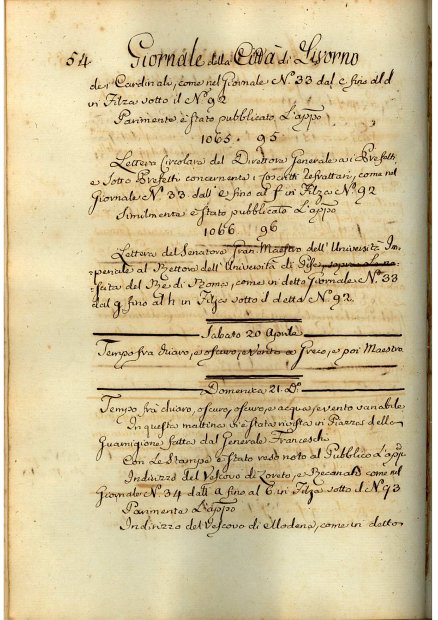 54 Giornale della Città di Livorno
de i Cardinali, come nel Giornale N.º 33 dal c fino al d
in Filza sotto il Nº 92
Parimente è stato pubblicato L'appo
1065. 95
Lettera Circolare del Direttore Generale a i Prefetti,
e Sotto Prefetti concernente i Coscritti Refrattari, come nel
Giornale Nº 33 dall' e fino al f in Filza Nº 92
Similmente è stato pubblicato L'appo
1066 96
Lettera del Senatore Gran Maestro dell' Università Im
periale al Rettore dell' Università di Pisa, sopra la na
scita del Re di Roma, come in detto Giornale Nº 33
dal g fino al h in Filza sotto il detto Nº 92.
Sabato 20 Aprile
Tempo fra chiaro, e oscuro, e vento a Greco, e poi Maestro
Domenica 21. Dº
Tempo fra chiaro, oscuro, oscuro, e acqua, e vento variabile
In questa mattina vi è stata rivista in Piazza della
Guarnigione fatta dal Generale Franceschi
Con le Stampe è stato reso noto al Pubblico L'app
Indirizzo del Vescovo di Loreto, e Recanati come nel
Giornale Nº 34 dall' a fino al b in Filza sotto il Nº 93
Parimente L'appo
Indirizzo del Vescovo di Modena, come in detto